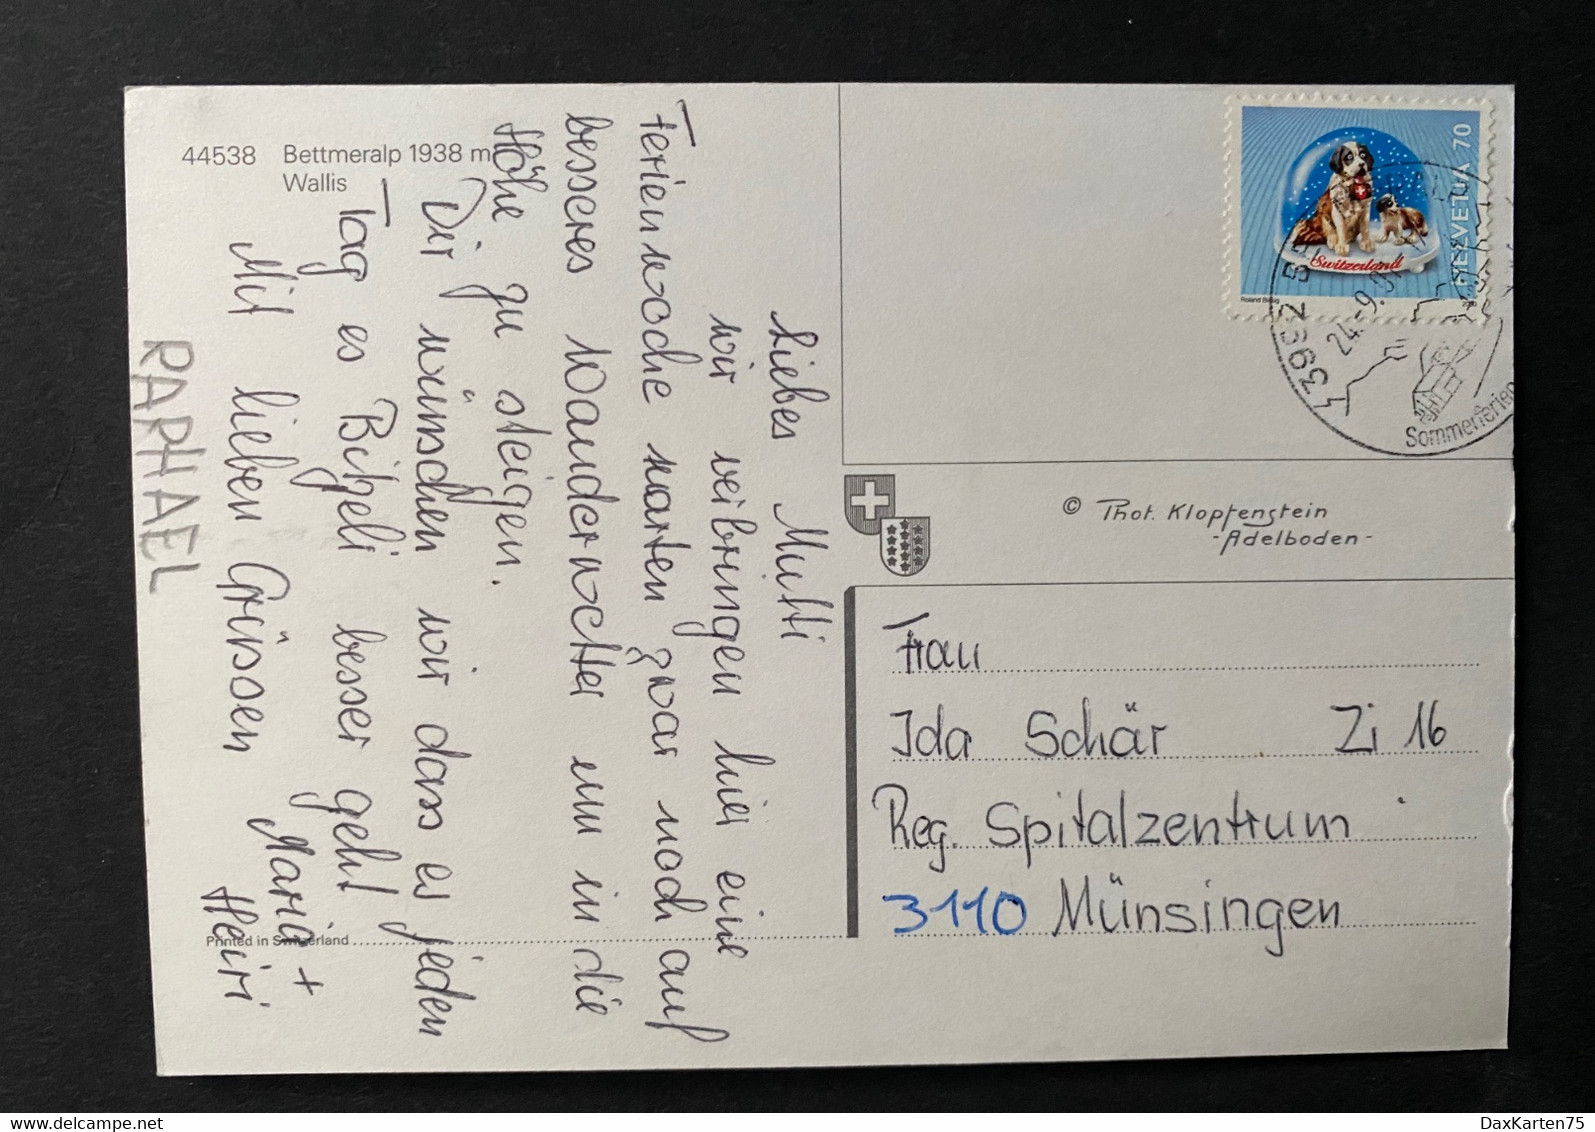 44538 Bettmeralp 1938 m
Wallis
Liebes Mutti
wir verbringen hier eine
Ferienwoche warten zwar noch auf
besseres Wanderwetter um in die
Höhe zu steigen.
Dir wünschen wir dass es jeden
Tag es Bitzeli besser geht
Mit lieben Grüssen Maria +
Heiri
RAPHAEL
Printed in Switzerland
HELVETIA 70
Switzerland
Roland Bissig
3992
24.-9.01
Sommerferien
© Phot. Klopfenstein
- Adelboden -
Frau
Ida Schär Zi 16
Reg. Spitalzentrum
3110 Münsingen
www.delcampe.net
DaxKarten75